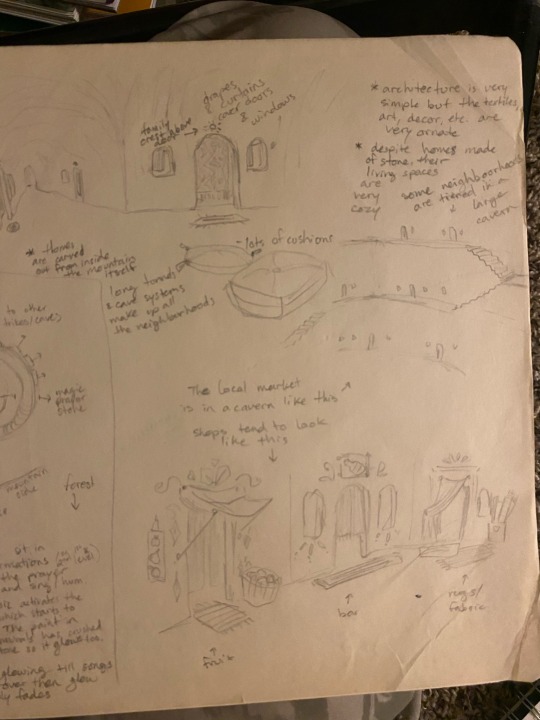 drapes,
curtains
over doors
& windows
family
crest above
door
* architecture is very
simple but the textiles,
art, decor, etc. are
very ornate
* despite homes made
of stone, their
living spaces
are
very
cozy
some neighboorhoods
are tiered in a
large
cavern
* Homes
are carved
out from inside
the mountain
itself
- lots of cushions
long tunnels
& cave systems
make up all
the neighborhoods
to other
tribes/caves
magic
prayer
stone
mountain
side
forest
The local market
is in a cavern like this
shops tend to look
like this
fruit
bar
rugs/
fabric
sit in
the prayer
and sing/hum
activates the
which starts to
The paint in
has crushed
so it glows too.
glowing till songs
over then glow
fades